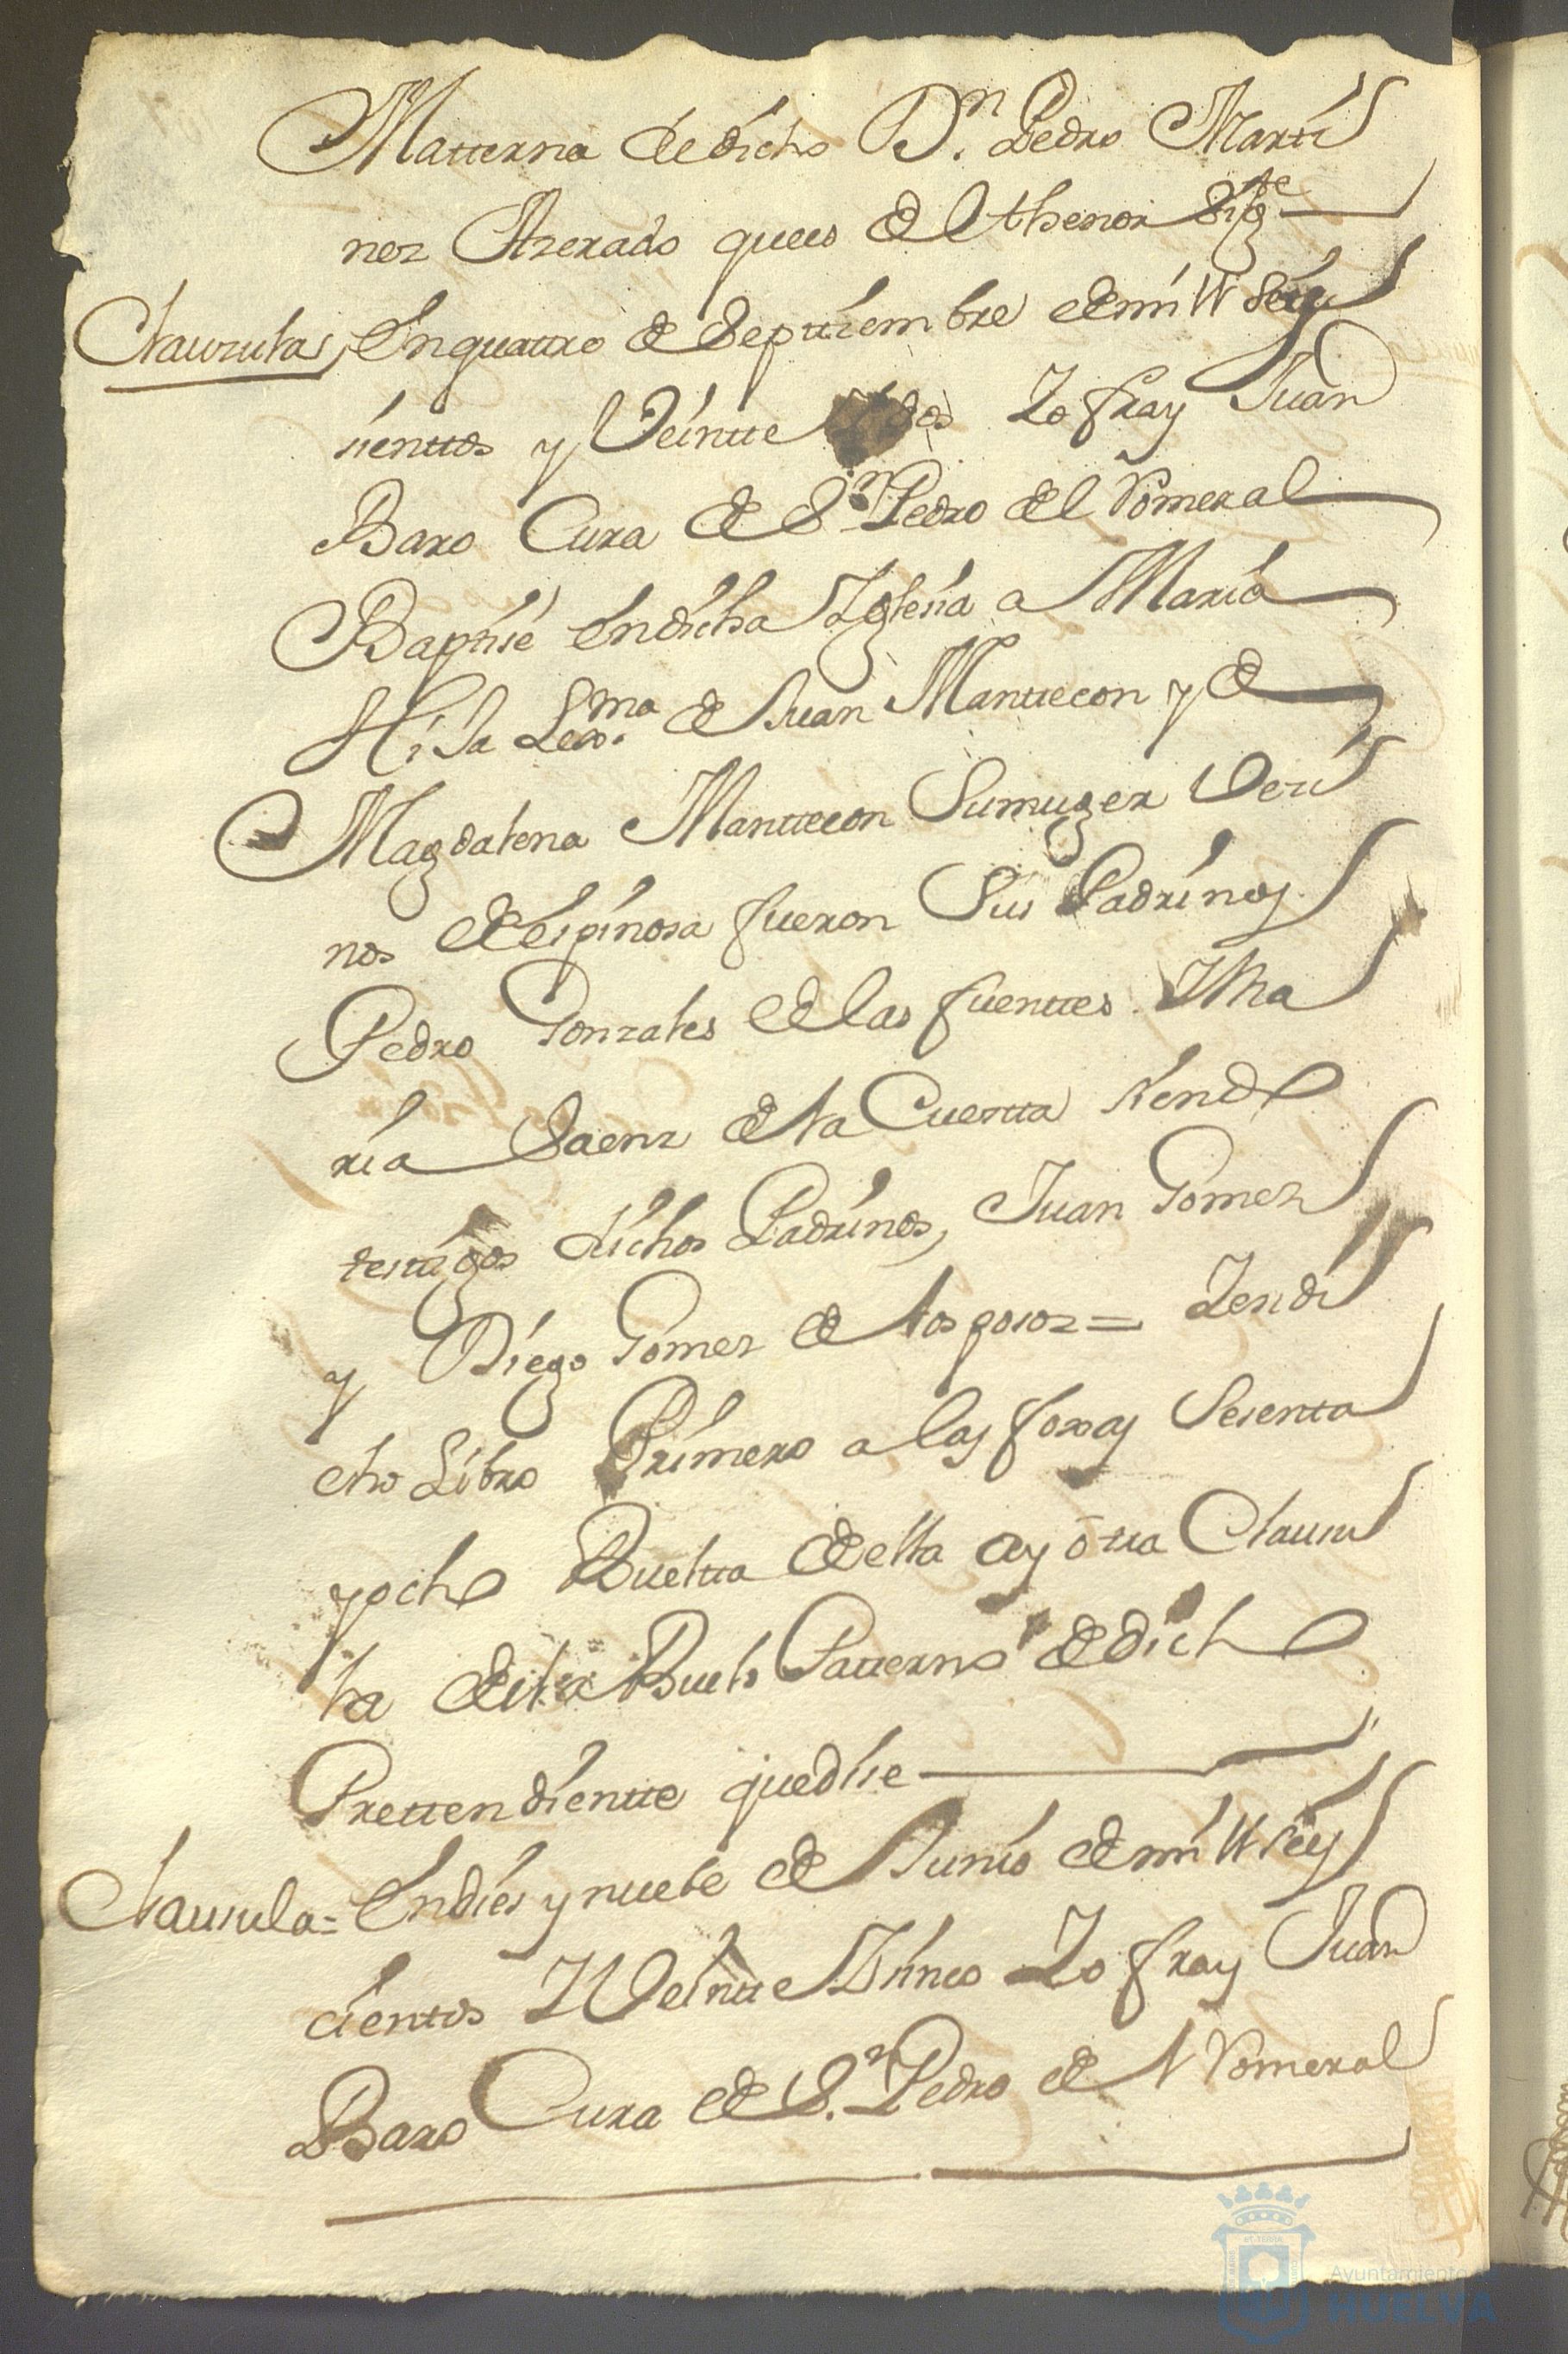 Matterna de dicho Dn. Pedro Marti
nez Azerado que es del thenor Sigte
Clauzula, En quattro de Septtiembre de mill Seis
sienttos y Veintte y dos Yo fray Juan
Baro Cura de Sn. Pedro del Pomeral
Baptisé en dicha Yglesia a Maria
Hija Lexma. de Juan Manttecon y de
Magdalena Manttecon Su muger Vezi
nos de Espinosa fueron Sus Padrinos
Pedro Gonzales de las fuenttes. Y Ma
ria Saenz de la Cuesta siendo
testigos dichos Padrinos, Juan Gomez
y Diego Gomez de los posoz = Y en di
cho Libro Primero a las foxas Sesenta
y ocho Buelta de ella ay otra Clausu
la de Buelo Patterno de dicho
Prettendientte que dise
Clausula = En dies y nuebe de Junio de mill seis
cientos Y Veintte Y sinco Yo fray Juan
Baro Cura de Sn. Pedro del Pomeral
Ayuntamiento
HUELVA